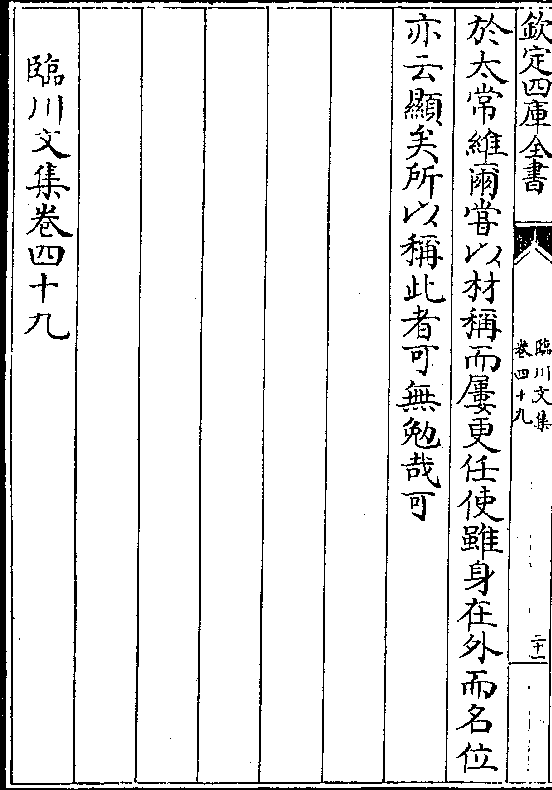 欽定四庫全書
臨川文集
卷四十九
二十一
於太常維爾嘗以材稱而屢更任使雖身在外而名位
亦云顯矣所以稱此者可無勉哉可
臨川文集卷四十九